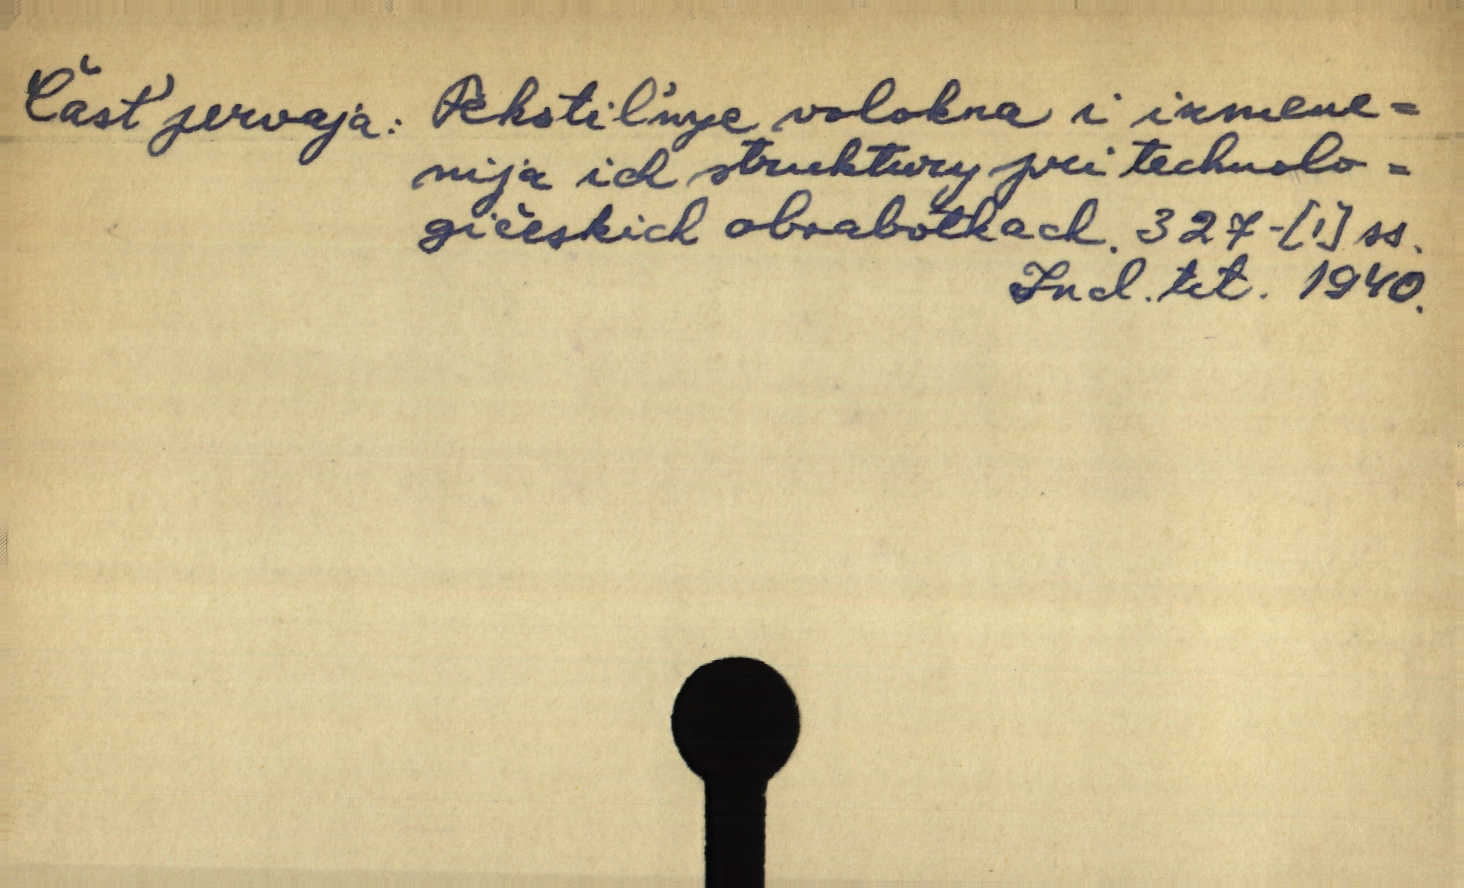 Čast' pervaja: Tekstil'nye volokna i izmene=
nija ich struktury pri technolo=
gičeskich obrabotkach. 327-[1] ss.
Incl. tit. 1940.